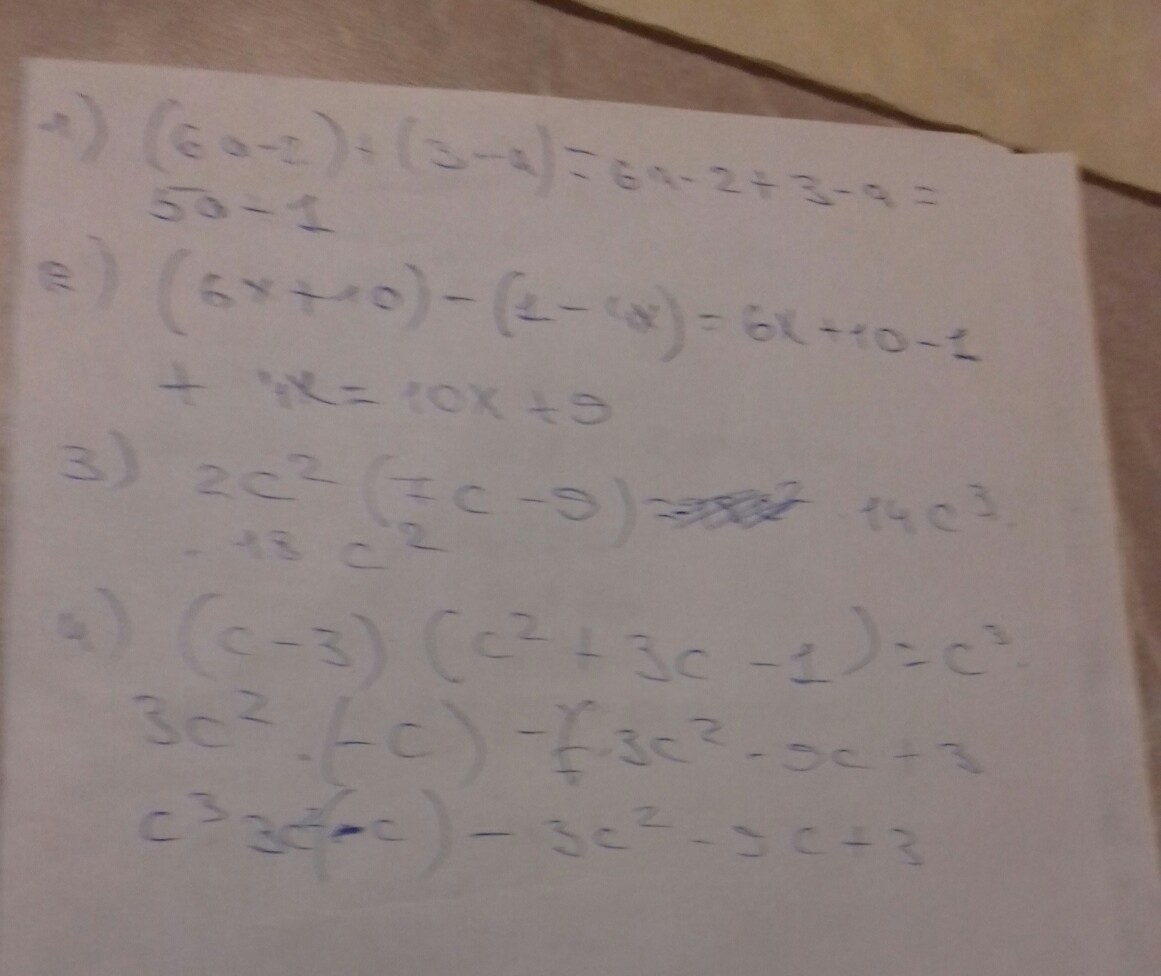 1) (6a-2)+(3-a)=6a-2+3-a=
5a-1
2) (6x+10)-(1-4x)=6x+10-1
+ 4x=10x+9
3) 2c² (7c-9)= 14c³
- 18 c²
4) (c-3) (c²+3c-1)=c³
3c² (-c) - 3c² - 9c+3
c³ 3c²(-c) - 3c² - 9c+3